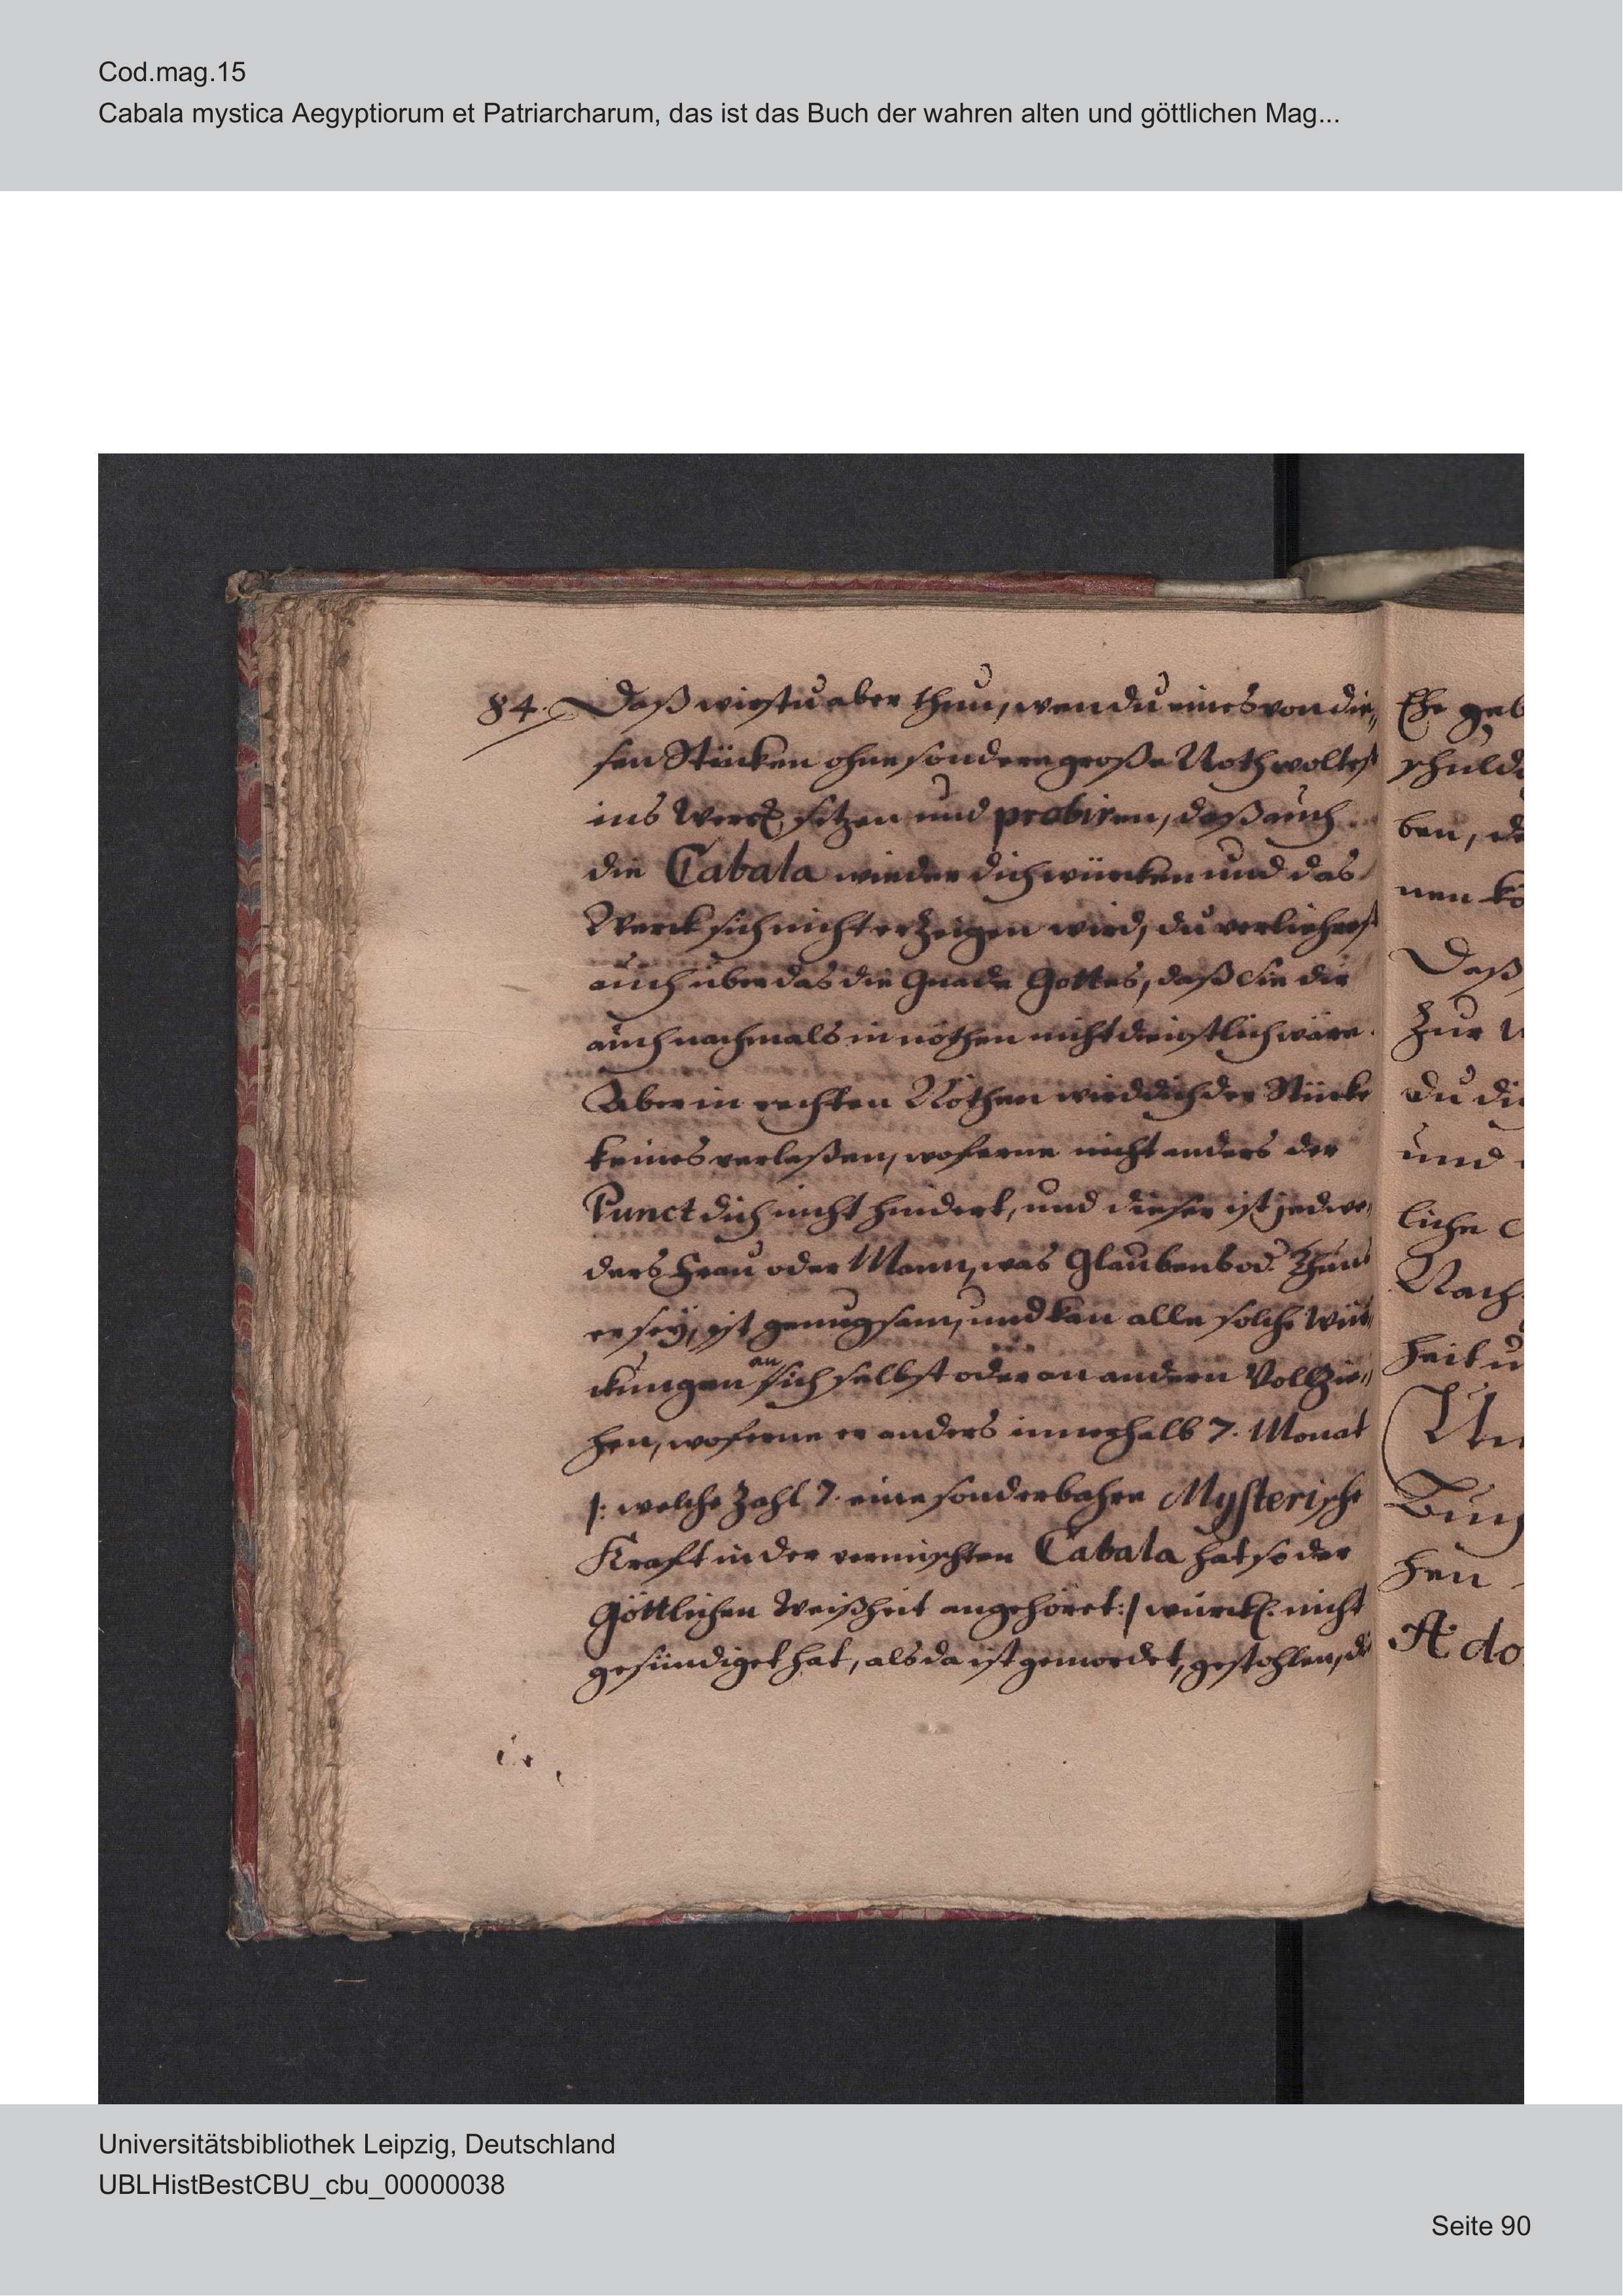 Cod.mag.15
Cabala mystica Aegyptiorum et Patriarcharum, das ist das Buch der wahren alten und göttlichen Mag...
84. Daß wirstu aber thun, wen du eines von die„
sen Stücken ohne sondere große Noth woltest
ins Werck setzen und probiren, daß auch
die Cabala wieder dich würcken und das
Werck sich nicht erzeigen wird, du verliehrest
auch über das die Gnade Gottes, daß Sie dir
auch nachmals in nöthen nicht dienstlich wäre.
Aber in rechten Nöthen wird dich der Stücke
keines verlaßen, woferne nicht anders der
Punct dich nicht hindert, und dieser ist jedwe„
ders Frau oder Mann, was Glaubens od.
er sey, ist genugsam, und kan alle solche Wür„
ckungen an sich selbst oder an andern Vollzie„
hen, woferne er anders innerhalb 7. Monat
/: welche Zahl 7. eine sonderbahre Mysterische
Kraft in der vermischten Cabala hat so der
Göttlichen Weißheit angehöret :/ würckl. nicht
gesündiget hat, als da ist gemordet, gestohlen, die
Ehe geb
schuld
ben, de
nen kö
Daß
Zur
du di
und
liche
Nach
heit u
Un
Buch
hen
Ado
Universitätsbibliothek Leipzig, Deutschland
UBLHistBestCBU_cbu_00000038
Seite 90